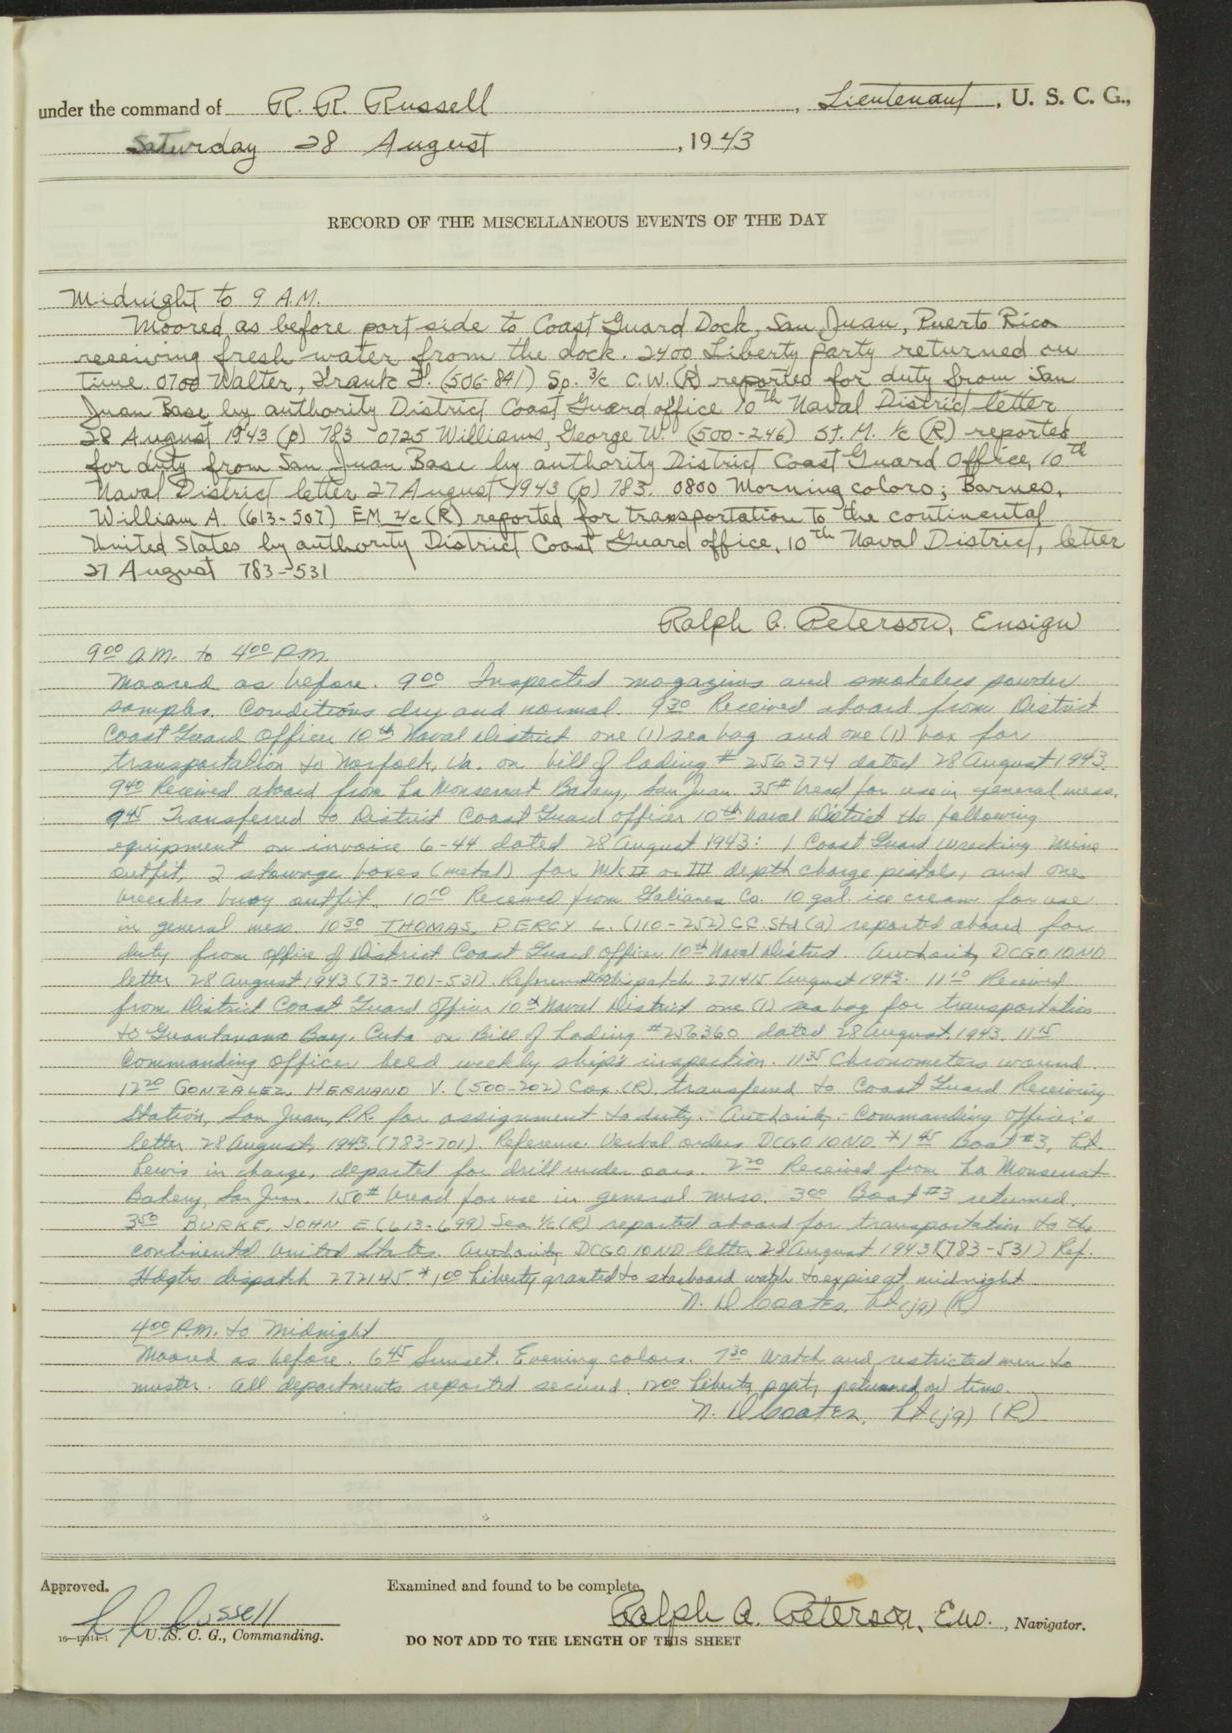 under the command of R. R. Russell, Lieutenant, U. S. C. G.,
Saturday 28 August, 1943
RECORD OF THE MISCELLANEOUS EVENTS OF THE DAY
Midnight to 9 A.M.
Moored as before port side to Coast Guard Dock, San Juan, Puerto Rico
receiving fresh water from the dock. 2400 Liberty party returned on
time. 0700 Walter, Frank F. (506-841) Sp. 3/c C.W. (R) reported for duty from San
Juan Base by authority District Coast Guard office 10th Naval District letter
28 August 1943 (p) 783 0725 Williams, George W. (500-246) St. M. 1/c (R) reported
for duty from San Juan Base by authority District Coast Guard Office, 10th
Naval District letter 27 August 1943 (p) 783. 0800 Morning colors; Barnes,
William A. (613-507) EM 2/c (R) reported for transportation to the continental
United States by authority District Coast Guard office, 10th Naval District, letter
27 August 783-531
Ralph A. Peterson, Ensign
900 A.M. to 400 P.M.
Moored as before. 900 Inspected magazines and smokeless powder
samples. Conditions dry and normal. 930 Received aboard from District
Coast Guard Officer 10th Naval District one (1) sea bag and one (1) box for
transportation to Norfolk, Va. on bill of lading # 256374 dated 28 August 1943.
940 Received aboard from La Monserrat Bakery, San Juan 35# bread for use in general mess.
945 Transferred to District Coast Guard Officer 10th Naval District the following
equipment on invoice 6-44 dated 28 August 1943: 1 Coast Guard wrecking mine
outfit, 2 stowage boxes (metal) for Mk II or III depth charge pistols, and one
breeches buoy outfit. 1010 Received from Co. 10 gal. ice cream for use
in general mess. 1030 THOMAS, PERCY L. (110-252) CC. Std (a) reported aboard for
duty from Office of District Coast Guard Officer 10th Naval District. Authority DCGO 10ND
letter 28 August 1943 (73-701-531). Reference Dispatch 271415 August 1943. 1110 Received
from District Coast Guard Officer 10th Naval District one (1) sea bag for transportation
to Guantanamo Bay, Cuba on Bill of Lading #256360 dated 28 August, 1943. 1115
Commanding Officer held weekly ship's inspection. 1135 Chronometers wound.
1220 GONZALEZ, HERNAND V. (500-202) Cox. (R), transferred to Coast Guard Receiving
Station, San Juan, P.R. for assignment to duty. Authority: Commanding Officer's
letter 28 August, 1943. (783-701). Reference: Verbal orders DCGO 10ND. *145 Boat #3, Lt.
Lewis in charge, departed for drill under oars. 220 Received from La Monserrat
Bakery, San Juan. 150# bread for use in general mess. 300 Boat #3 returned.
350 BURKE, JOHN E (613-699) Sea 1/c (R) reported aboard for transportation to the
continental United States. Authority DCGO 10ND letter 28 August 1943 (783-531) Ref.
Hdqtrs dispatch 272145. *100 Liberty granted to starboard watch to expire at midnight
N. D Coates, Lt (jg) (R)
400 P.M. to Midnight
Moored as before. 645 Sunset. Evening colors. 730 Watch and restricted men to
muster. All departments reported secured. 1200 Liberty party returned on time.
N. D Coates, Lt (jg) (R)
Approved.
Examined and found to be complete
R R Russell
Ralph A. Peterson, Ens., Navigator.
U. S. C. G., Commanding.
DO NOT ADD TO THE LENGTH OF THIS SHEET